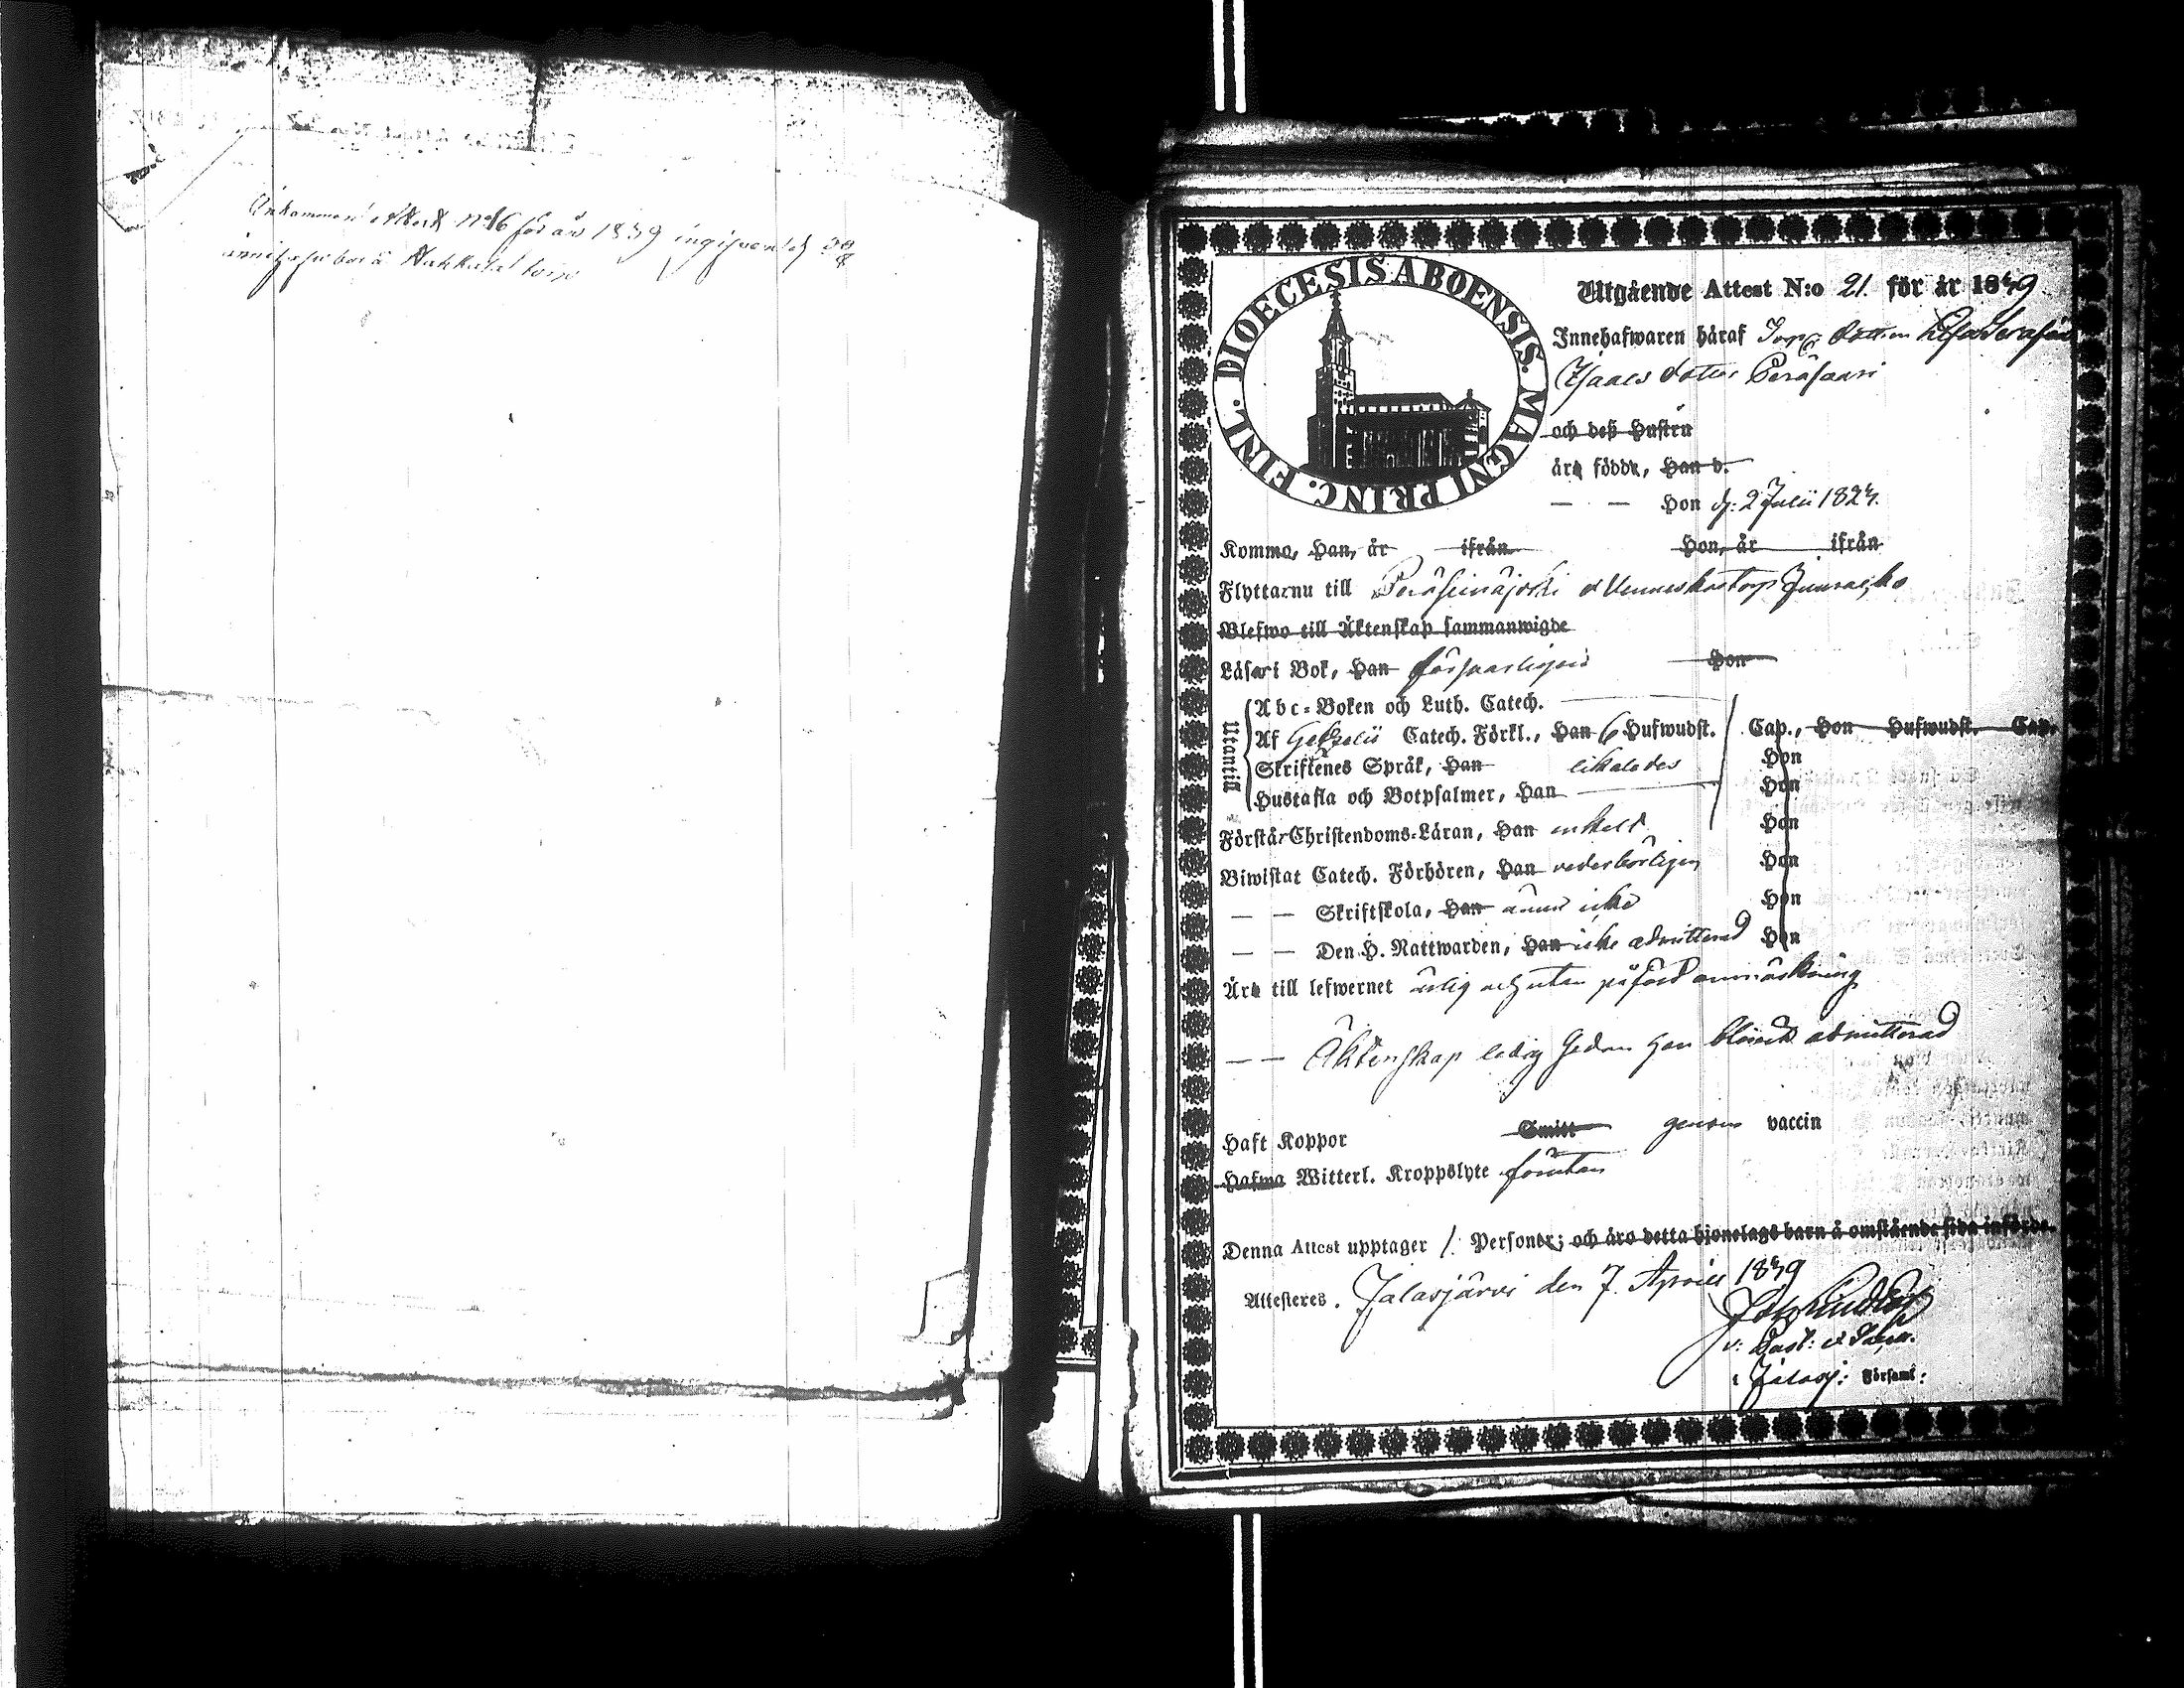 Ankommen Attest No 16 för år 1849 ingifven d. 29/4
å Hakkala torp
DIOECESIS ABOENSIS. MAGNI PRINC. FINL.
Utgående Attest N:o 21. för år 1849
Innehafwaren häraf Torp. dottren
Isaacs dotter Peräsaari
och deß Hustru
äro födde, Han d.
— — Hon d: 2 Julii 1824.
Komma, Han, år ifrån Hon, år ifrån
Flyttar nu till Peräseinäjoki
Blefwo till Äktenskap sammanwigde
Läser i Bok, Han försvarligen Hon
Utantill
Abc-Boken och Luth. Catech.
Af Gezelii Catech. Förkl., Han 6 Hufwudst. Cap., Hon Hufwudst. Cap.
Skriftenes Språk, Han likaledes Hon
Hustafla och Botpsalmer, Han Hon
Förstår Christendoms-Läran, Han enkelt Hon
Biwistat Catech. Förhören, Han vederbörligen Hon
— — Skriftskola, Han ännu icke Hon
— — Den H. Nattwarden, Han icke admitterad Hon
Äro till lefwernet ärlig och utan påförd anmärkning
— — Äktenskap ledig sedan hon blifvit admitterad
Haft Koppor Smitt genom vaccin
Hafwa Witterl. Kroppslyte förutan
Denna Attest upptager 1. Personer; och äro detta hjonelags barn å omstående sida införde.
Attesteras. Jalasjärvi den 7. April 1849
v: Past:
i Jalasj: Församl: